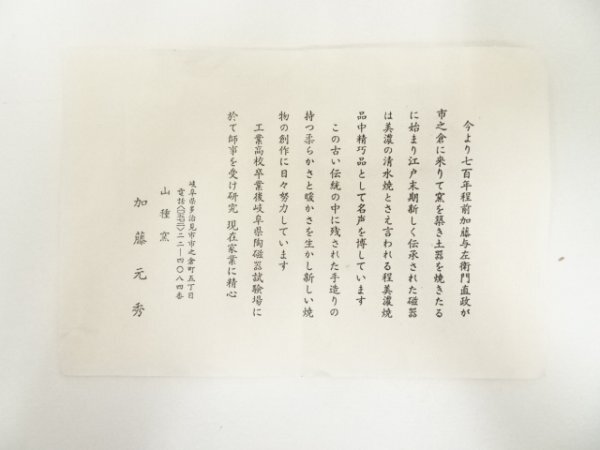 今より七百年程前加藤与左衛門直政が
市之倉に来りて窯を築き土器を焼きたる
に始まり江戸末期新しく伝承された磁器
は美濃の清水焼とさえ言われる程美濃焼
品中精巧品として名声を博しています
この古い伝統の中に残された手造りの
持つ柔らかさと暖かさを生かし新しい焼
物の創作に日々努力しています
工業高校卒業後岐阜県陶磁器試験場に
於て師事を受け研究 現在家業に精心
岐阜県多治見市市之倉町五丁目
電話(〇五七二)二二―四〇八四番
山種窯
加藤元秀